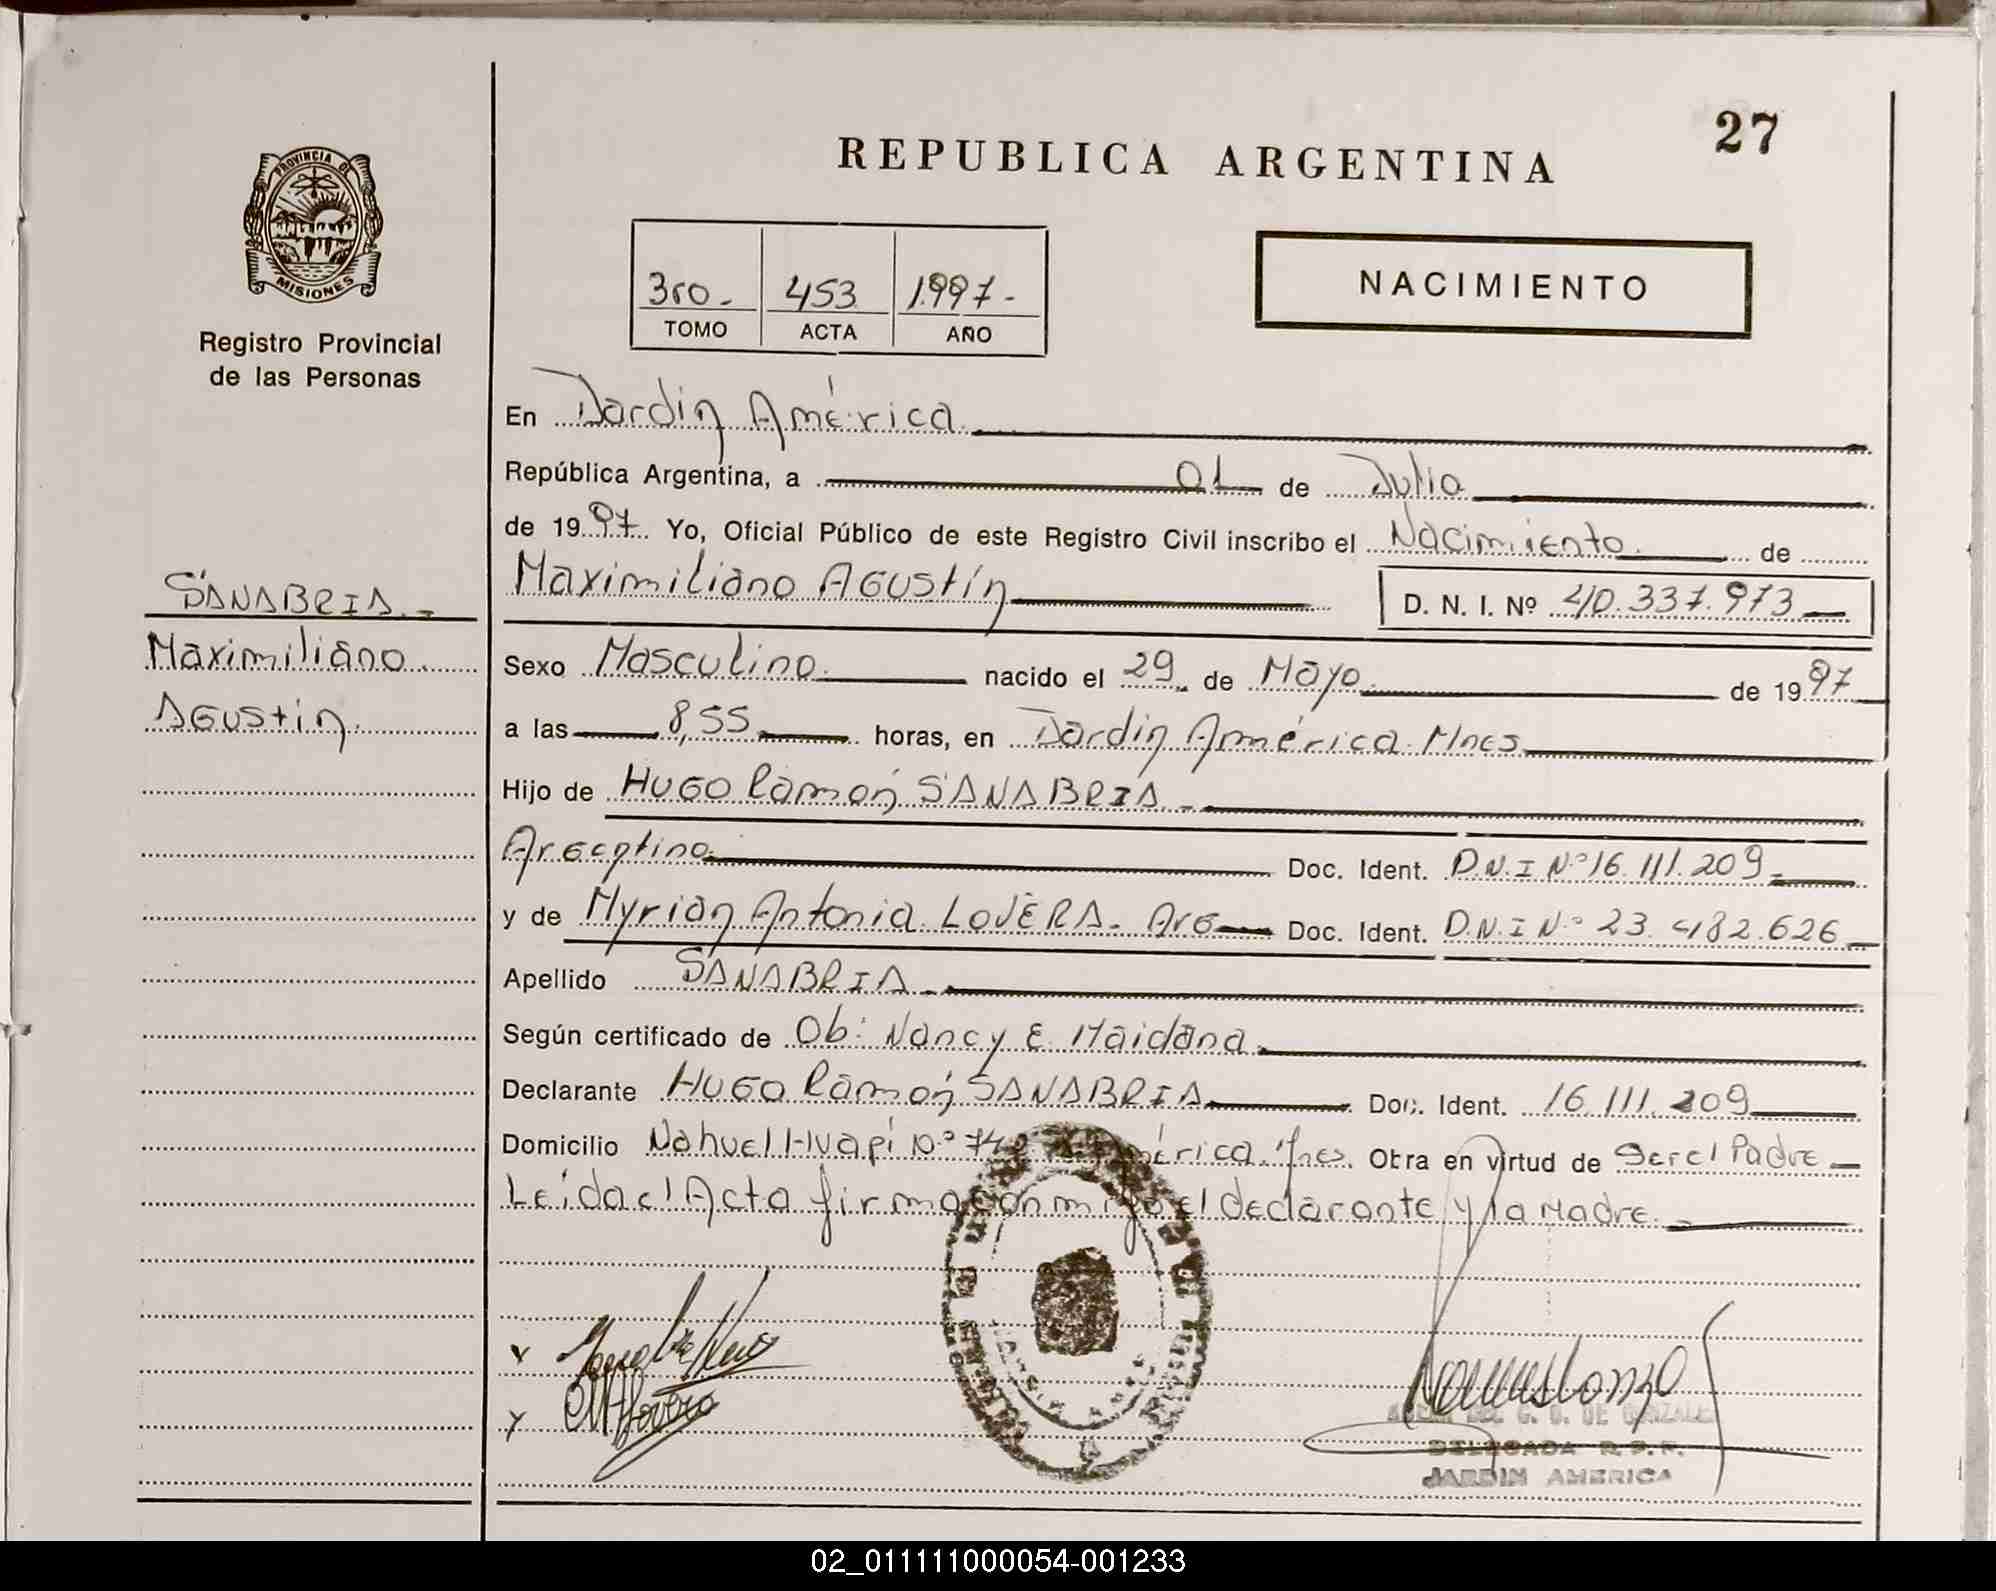 PROVINCIA DE
MISIONES
Registro Provincial
de las Personas
SANABRIA.-
Maximiliano
Agustín.
27
REPUBLICA ARGENTINA
3ro.- 453 1.997.-
TOMO ACTA AÑO
NACIMIENTO
En Jardín América
República Argentina, a 01 de Julio
de 1997 Yo, Oficial Público de este Registro Civil inscribo el Nacimiento de
Maximiliano Agustín D. N. I. Nº 40.337.973
Sexo Masculino nacido el 29 de Mayo de 1997
a las 8,55 horas, en Jardín América. Mnes
Hijo de Hugo Ramón SANABRIA.-
Argentino Doc. Ident. D.N.I Nº 16.111.209
y de Myrian Antonia LOVERA. Arg Doc. Ident. D.N.I Nº 23.482.626
Apellido SANABRIA.
Según certificado de Ob: Nancy E. Maidana
Declarante Hugo Ramón SANABRIA Doc. Ident. 16.111.209
Domicilio Nahuel Huapí Nº América. Mnes. Obra en virtud de Ser el Padre
Leída el Acta firma conmigo el declarante y la Madre.
DELEGADA R. P. P.
JARDIN AMERICA
02_011111000054-001233